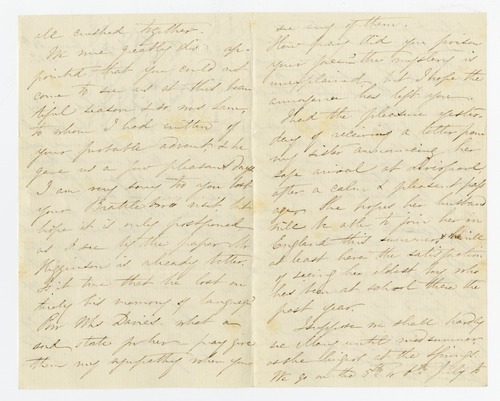 all crushed together.
We were greatly dis- ap-
pointed that you could not
come to see us at this beau
tiful season & so was
to whom I had written of
your probable advent, & he
gave us a few pleasant days
I am very sorry too you lost
your Brattleboro visit but
hope it is only postponed
as I see by the paper Mr
Higginson is already better.
Is it true that he lost en
tirely his memory of language?
Poor Mrs Davies what a
sad state for her pray give
them my sympathy when you
see any of them.
How did you poison
your the mystery is
unexplained, but I hope the
annoyance has left you.
I had the pleasure yester-
day of receiving a letter from
my sister announcing her
safe arrival at Liverpool
after a calm & pleasant pass
age. She hopes her husband
will be able to join her in
England this summer, & she will
at least have the satisfaction
of seeing her oldest boy who
has been at school there the
past year.
I suppose we shall hardly
see Mary until midsummer
as she lingers at the Springs.
We go on the 5th or 6th July to